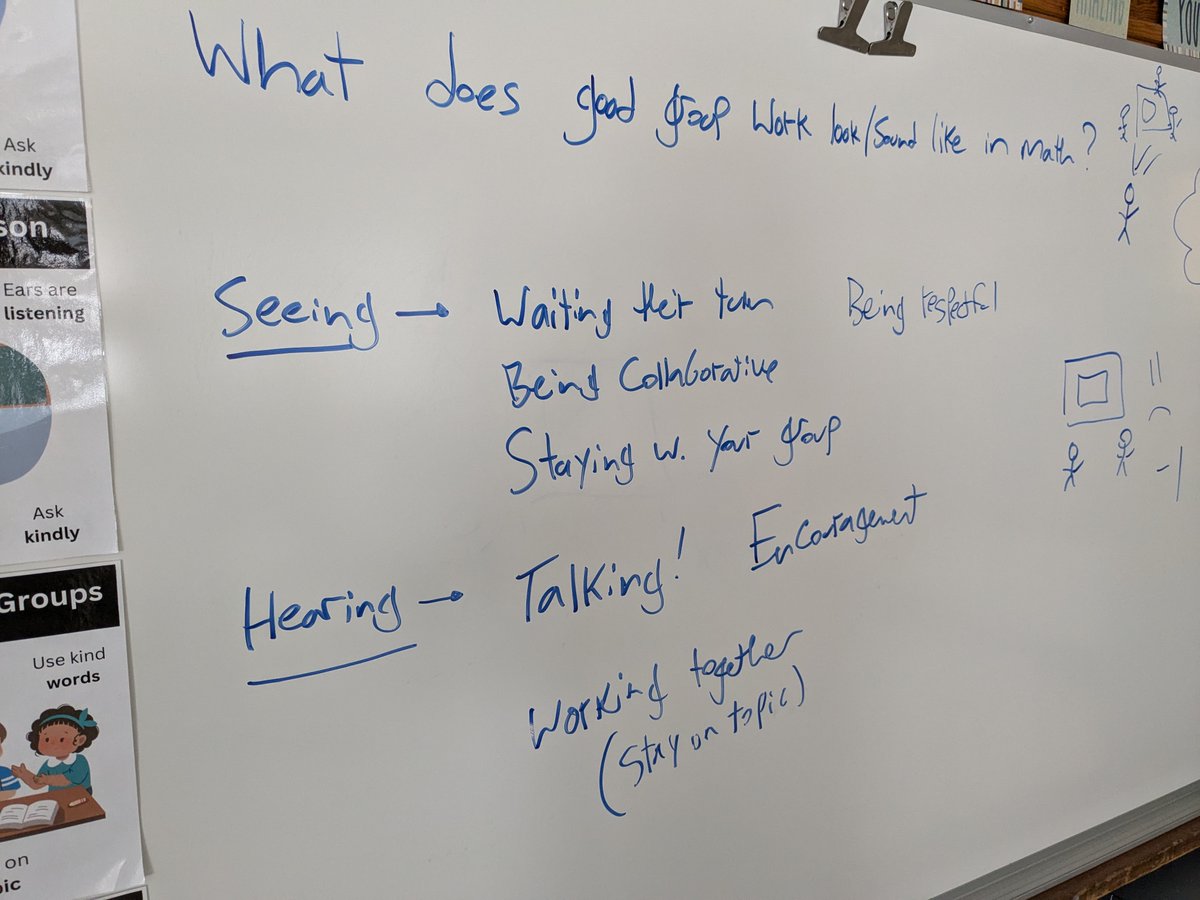 What does good group work look/sound like in math?
Seeing → Waiting their turn Being respectful
Being Collaborative
Staying w. your group
Hearing → Talking! Encouragement
Working together
(Stay on topic)
Ask
kindly
son
Ears are
listening
Ask
kindly
Groups
Use kind
words
on
pic
AMAZING
YOU